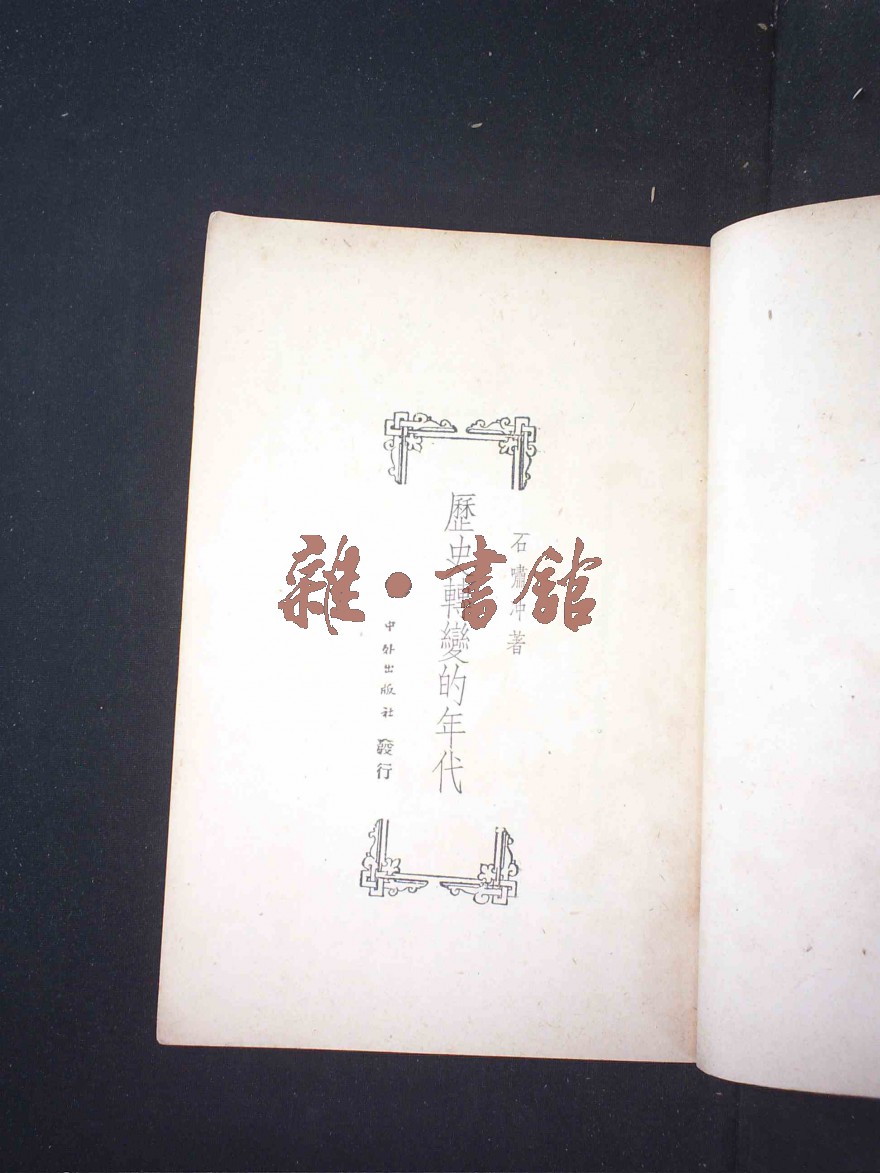 石嘯冲著
歷史轉變的年代
中外出版社 發行
雜·書館